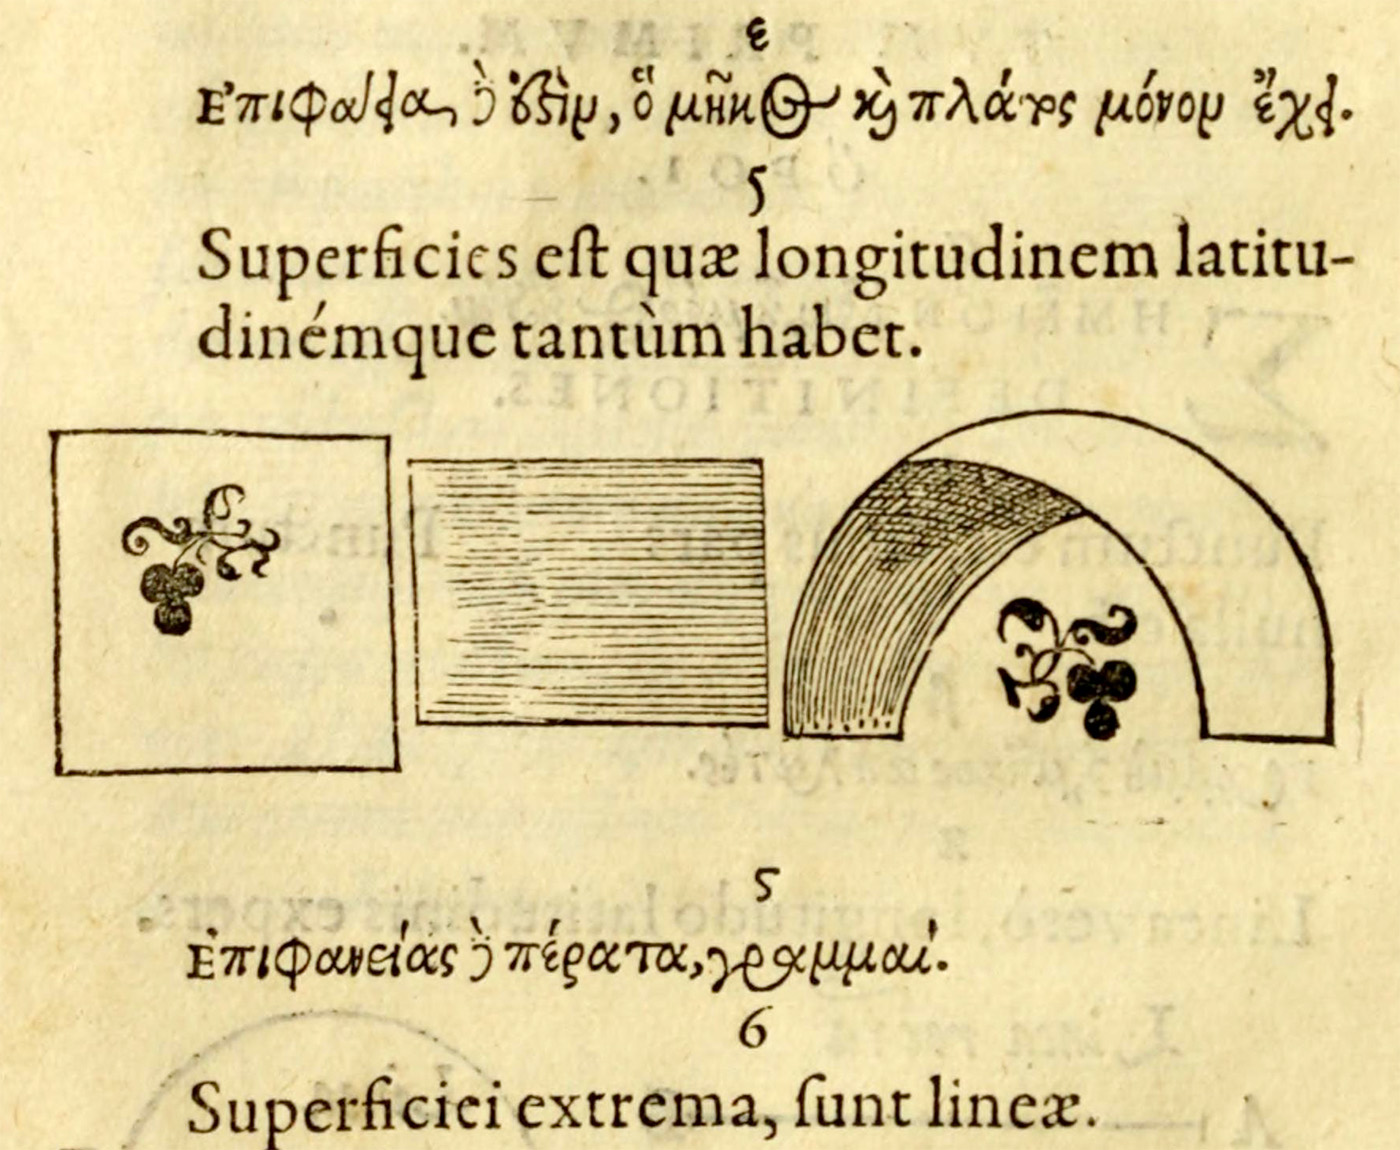 ε
Ἐπιφάνεια δέ ἐστιν, ὃ μῆκος καὶ πλάτος μόνον ἔχει.
5
Superficies est quæ longitudinem latitu-
dinémque tantùm habet.
ς
Ἐπιφανείας δὲ πέρατα, γραμμαί.
6
Superficiei extrema, sunt lineæ.